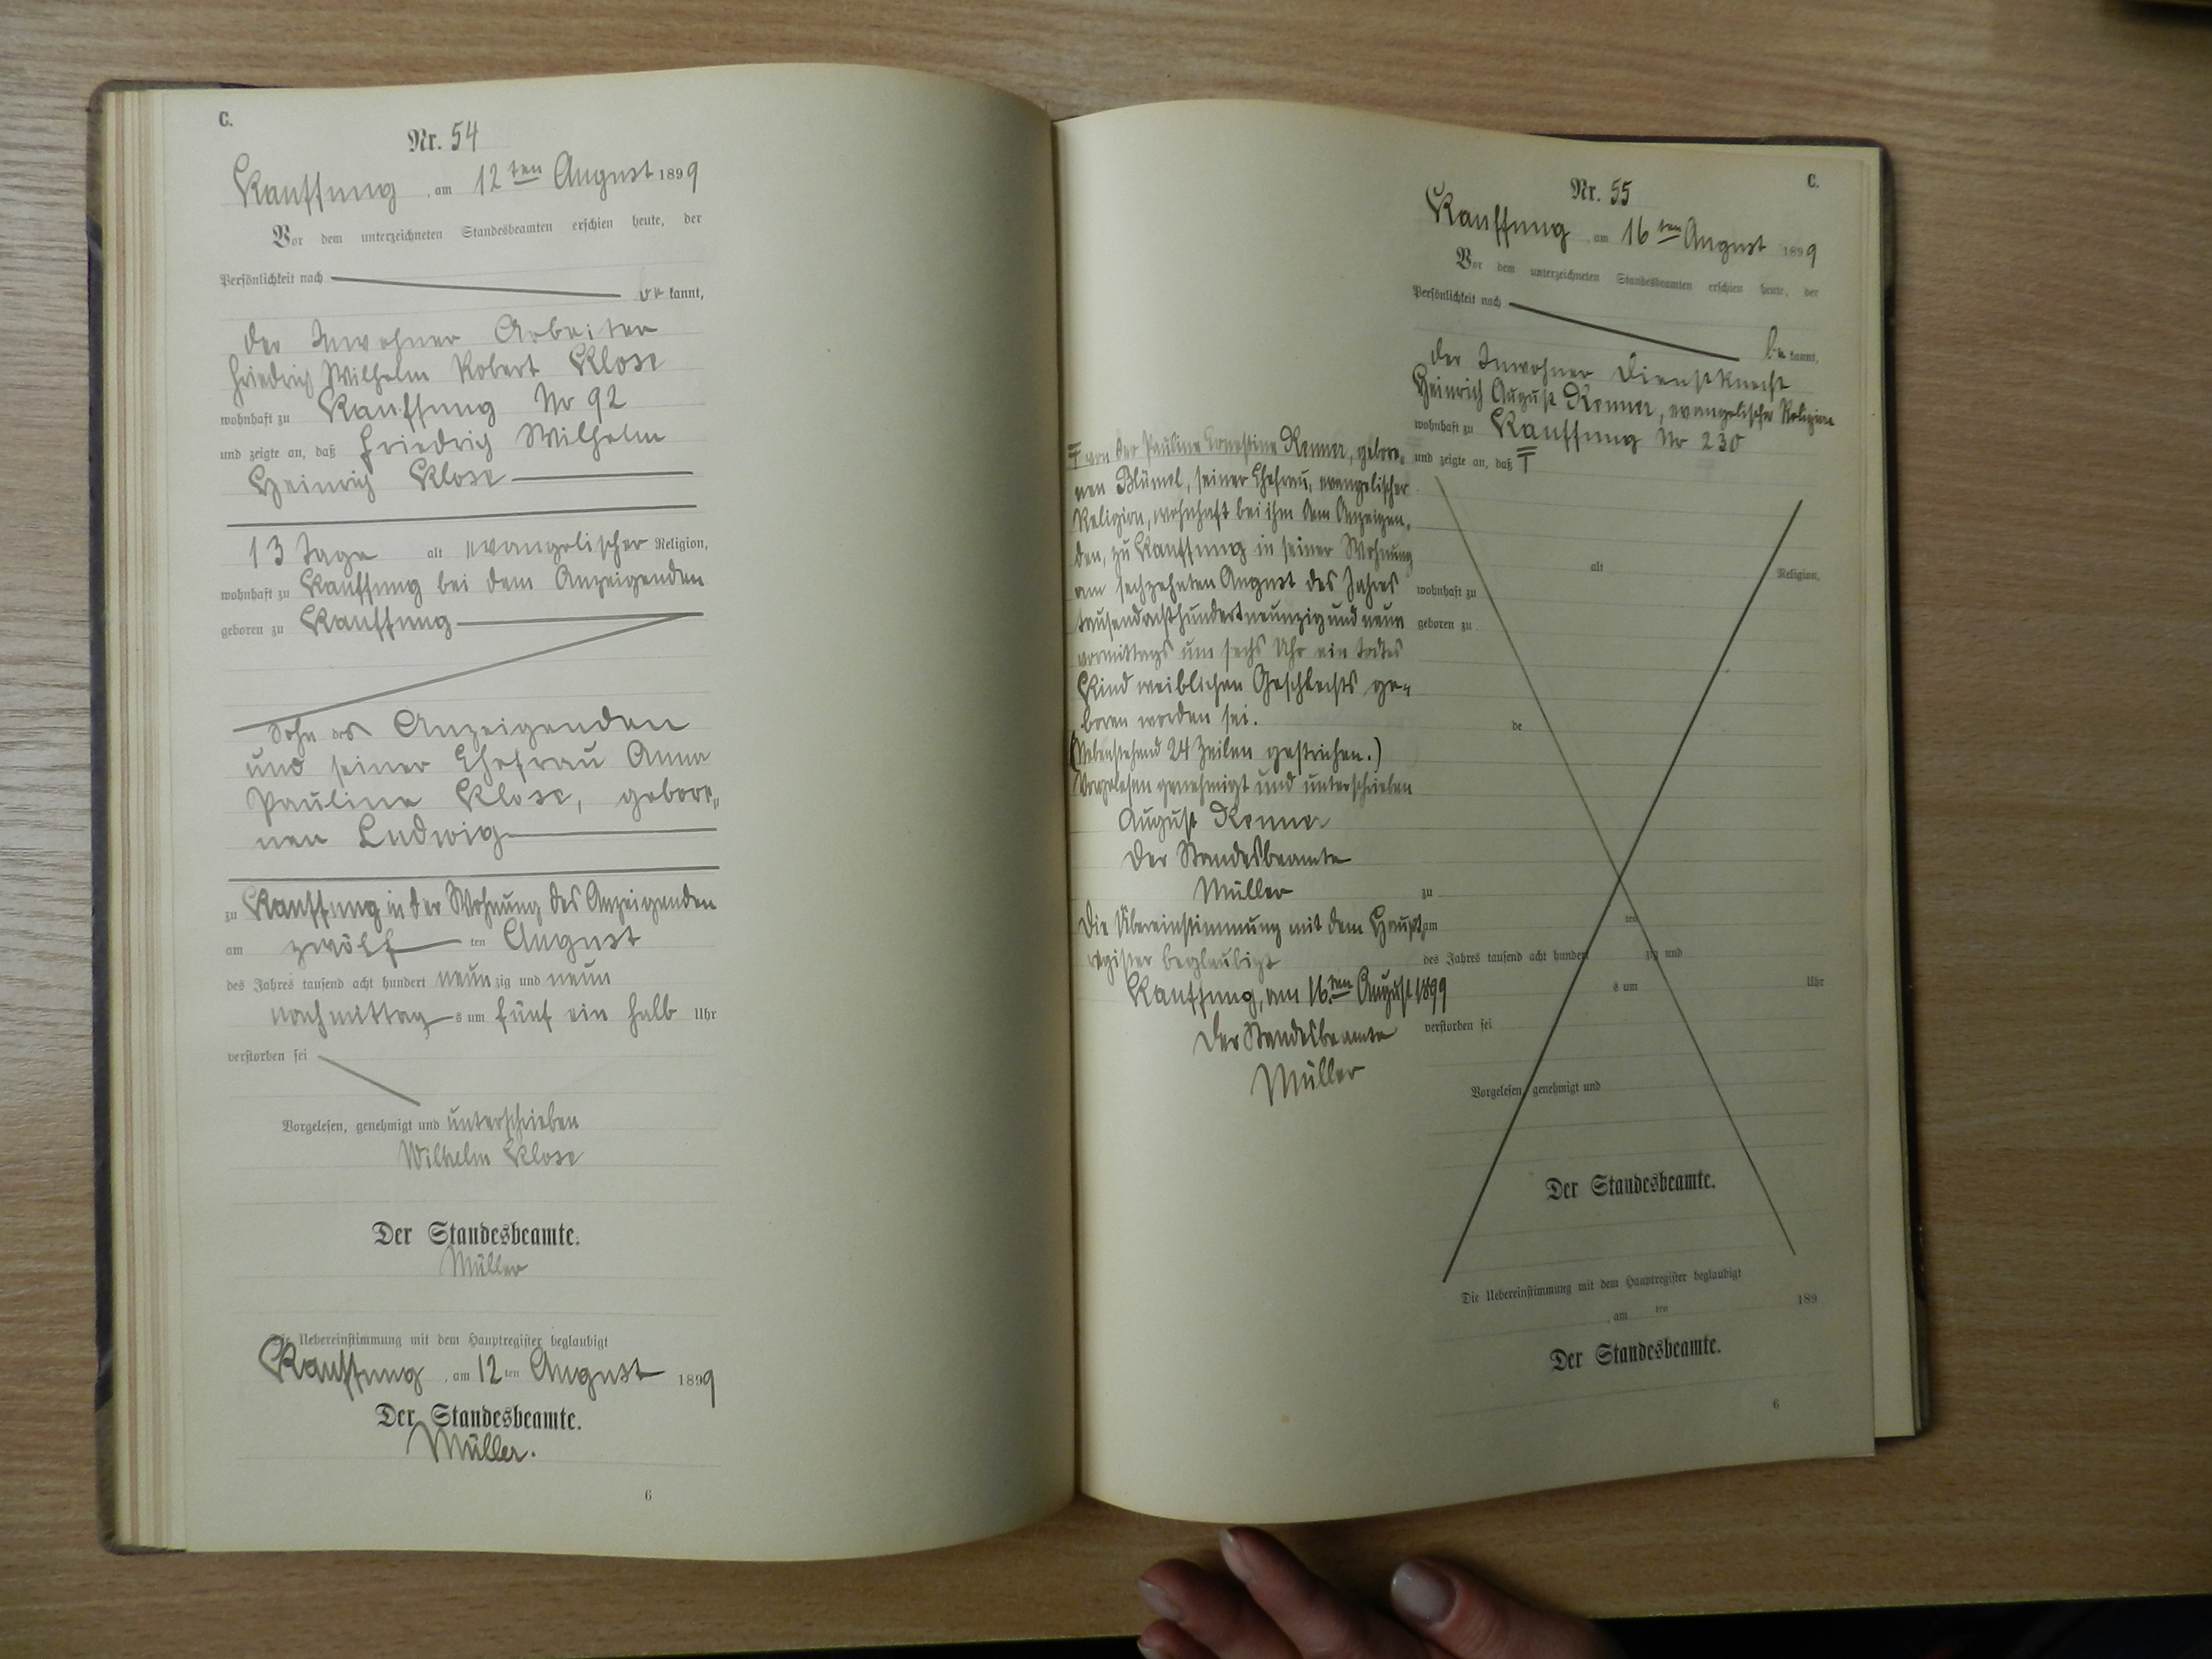 C.
Nr. 54
Kauffung, am 12ten August 1899
Vor dem unterzeichneten Standesbeamten erschien heute, der
Persönlichkeit nach
kannt,
der Inwohner Arbeiter
Friedrich Wilhelm Robert Klose
wohnhaft zu Kauffung Nr 92
und zeigte an, daß Friedrich Wilhelm
Heinrich Klose
13 Tage alt evangelischer Religion,
wohnhaft zu Kauffung bei dem Anzeigenden
geboren zu Kauffung
Sohn des Anzeigenden
und seiner Ehefrau Anna
Pauline Klose, gebore„
nen Ludwig
zu Kauffung in der Wohnung des Anzeigenden
am zwölf ten August
des Jahres tausend acht hundert neun zig und neun
nachmittag s um fünf ein halb Uhr
verstorben sei
Vorgelesen, genehmigt und unterschrieben
Wilhelm Klose
Der Standesbeamte.
Müller
Die Uebereinstimmung mit dem Hauptregister beglaubigt
Kauffung, am 12ten August 1899
Der Standesbeamte.
Müller.
6
C.
Nr. 55
Kauffung, am 16ten August 1899
Vor dem unterzeichneten Standesbeamten erschien heute, der
Persönlichkeit nach
be kannt,
der Inwohner Dienstknecht
Heinrich August Renner, evangelischer Religion
wohnhaft zu Kauffung Nr 230
und zeigte an, daß
von der Pauline Ernestine Renner, gebore„
nen Blümel, seiner Ehefrau, evangelischer
Religion, wohnhaft bei ihm dem Anzeigen„
den, zu Kauffung in seiner Wohnung
am sechzehnten August des Jahres
tausendachthundertneunzig und neun
vormittags um sechs Uhr ein todtes
Kind weiblichen Geschlechts ge„
boren worden sei.
(Nebenstehend 24 Zeilen gestrichen.)
Vorgelesen genehmigt und unterschrieben
August Renner
Der Standesbeamte
Müller
Die Übereinstimmung mit dem Haupt„
register beglaubigt
Kauffung, am 16.ten August 1899
Der Standesbeamte
Müller
alt Religion,
wohnhaft zu
geboren zu
de
zu
am ten
des Jahres tausend acht hundert zig und
s um Uhr
verstorben sei
Vorgelesen, genehmigt und
Der Standesbeamte.
Die Uebereinstimmung mit dem Hauptregister beglaubigt
, am ten 189
Der Standesbeamte.
6